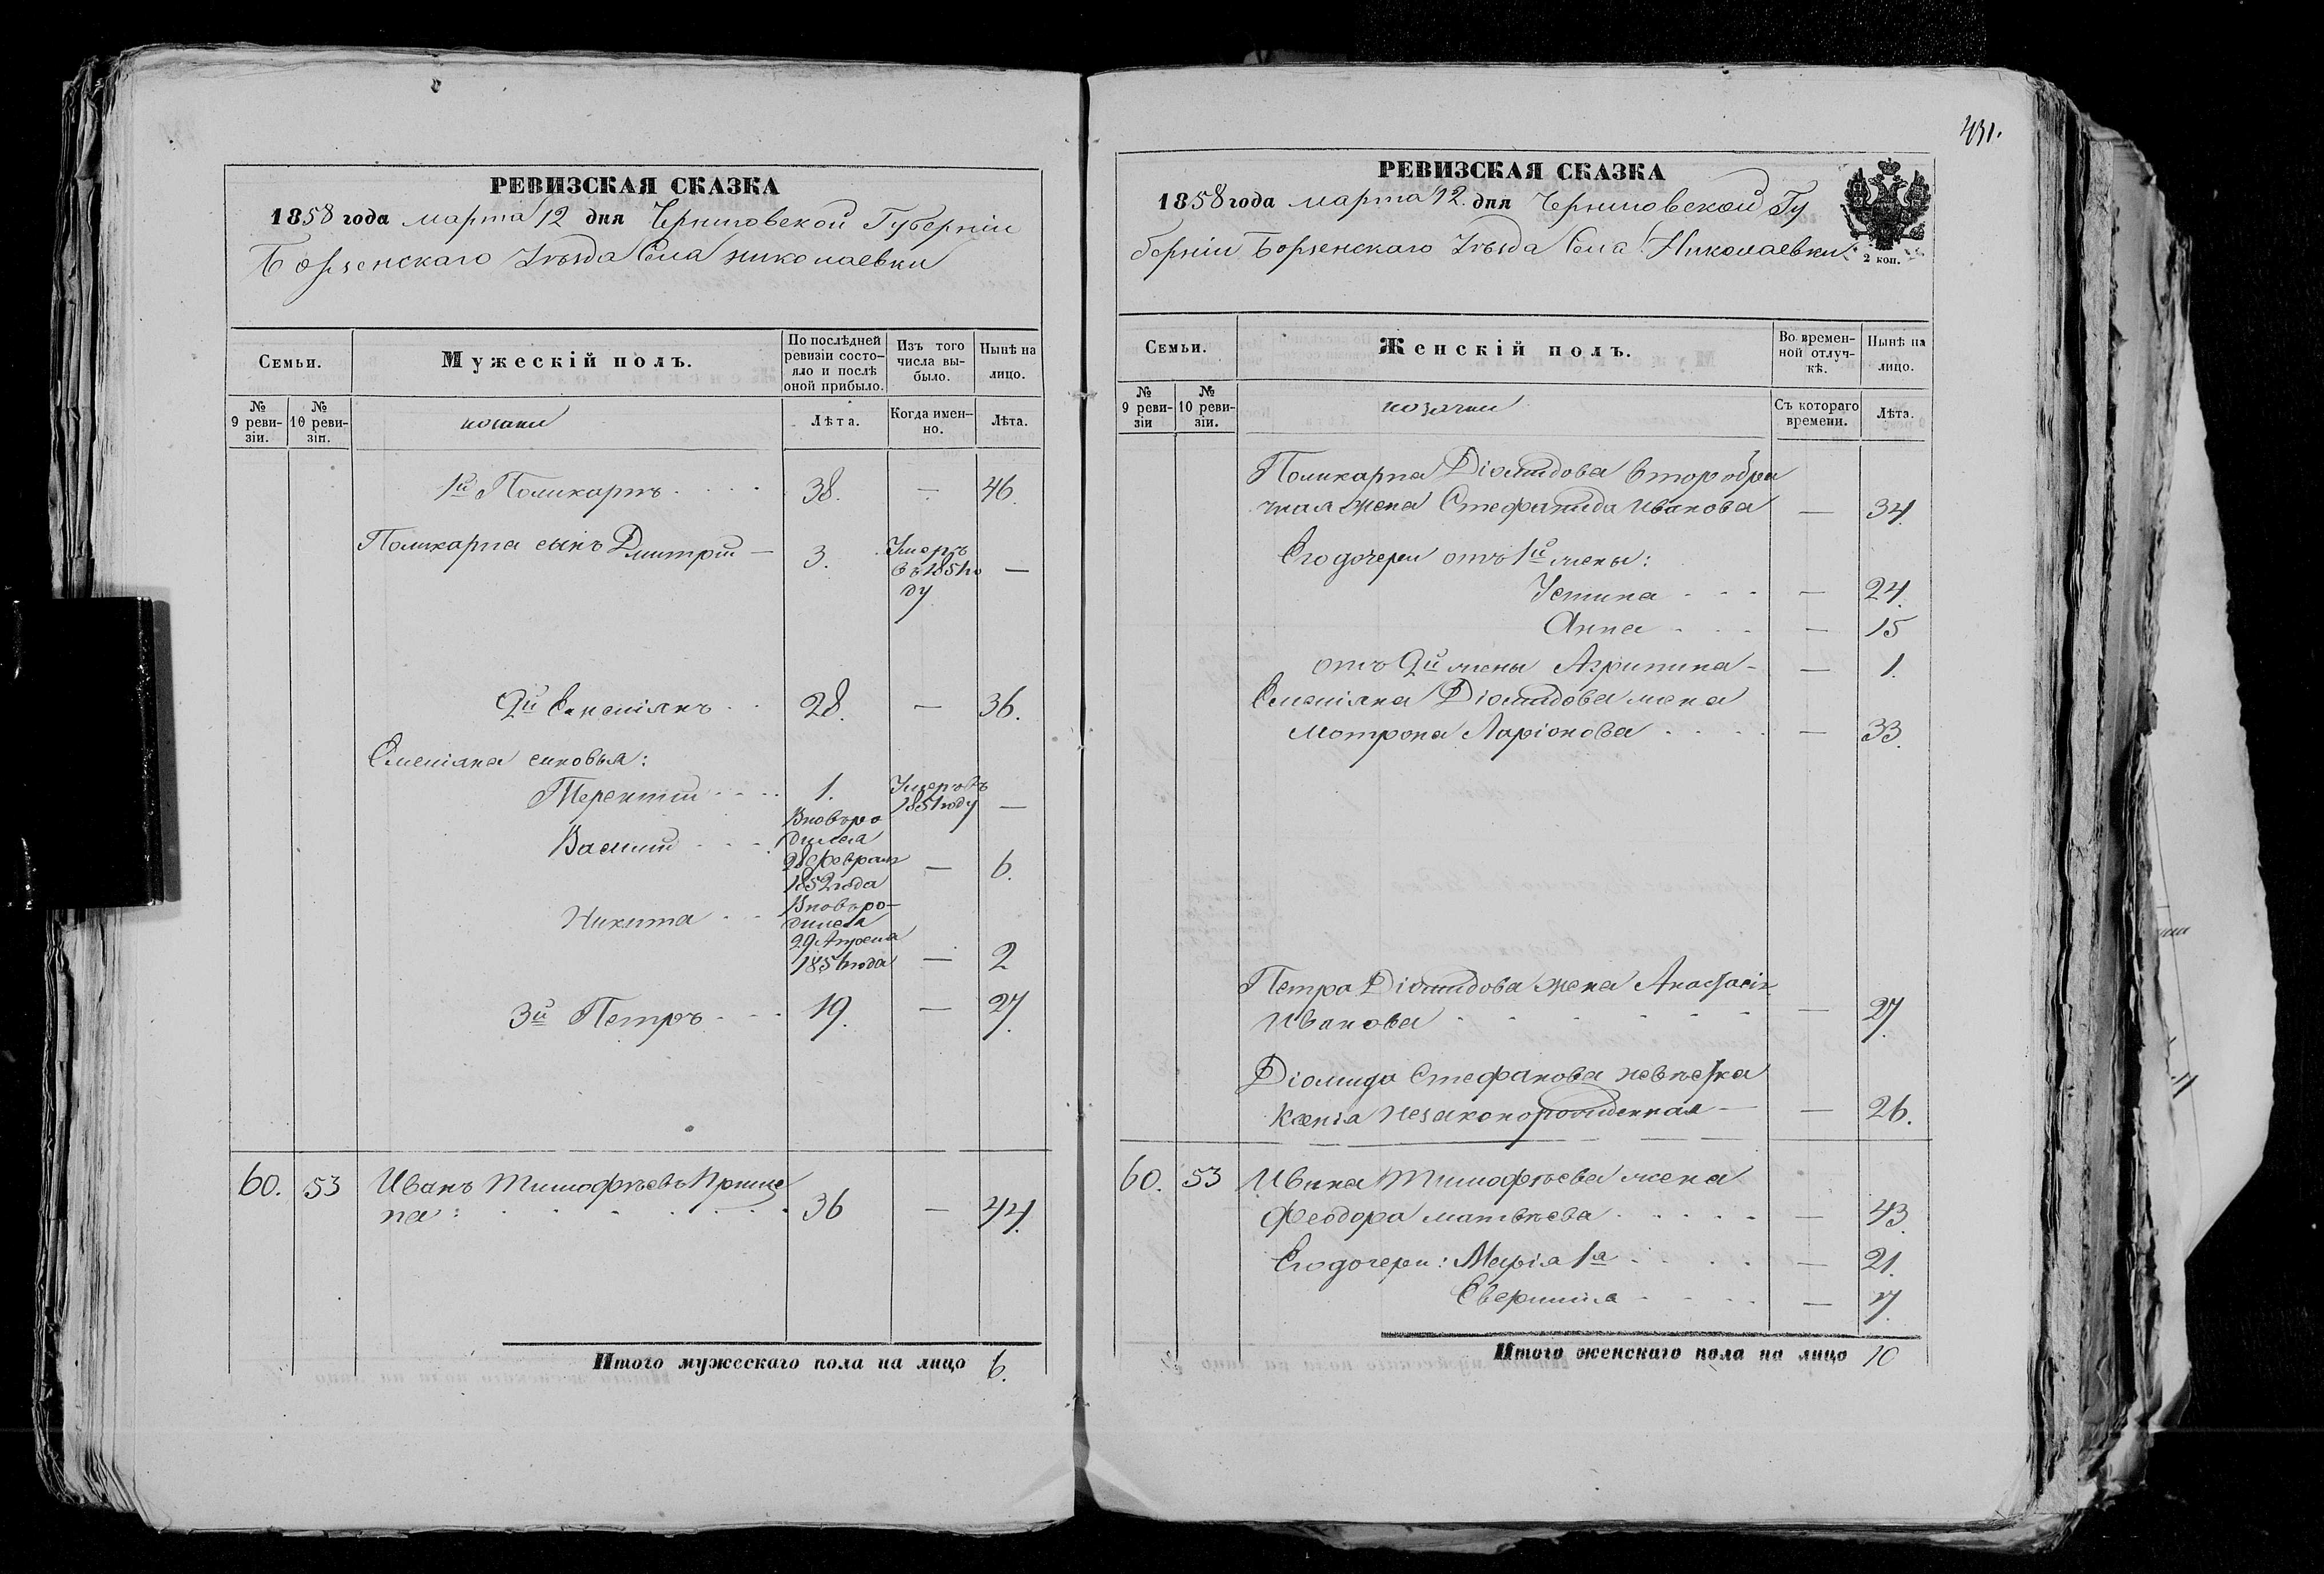 431.
РЕВИЗСКАЯ СКАЗКА
1858 года марта 12 дня Черниговской Губерніи
Борзенскаго Уѣзда Села Николаевки
Семьи.
Мужескій полъ.
По послѣдней ревизіи состо-
яло и послѣ оной прибыло.
Изъ того числа вы-
было.
Нынѣ на лицо.
№ 9 реви-
зіи.
№ 10 реви-
зіи.
козаки
Лѣта.
Когда имен-
но.
Лѣта.
1й Поликарпъ 38. — 46.
Поликарпа сынъ Дмитрій — 3. Умеръ
въ 185 го
ду —
2й Емеліянъ 28. — 36.
Емеліяна сыновья:
Терентій 1. Умеръ въ
1851 году —
Василій Вновь ро
дился
28 Февраля
1852 года — 6.
Никита Вновь ро-
дился
29 Апреля
1856 года — 2
3й Петръ 19. — 27.
60. 53 Иванъ Тимофѣевъ
па 36 — 44.
Итого мужескаго пола на лицо 6.
РЕВИЗСКАЯ СКАЗКА
1858 года марта 12. дня Черниговской Гу
берніи Борзенскаго Уѣзда Села Николаевки.
2 коп.
Семьи.
Женскій полъ.
Во времен-
ной отлуч-
кѣ.
Нынѣ на лицо.
№ 9 реви-
зіи
№ 10 реви-
зіи.
козачки
Съ котораго времени.
Лѣта.
Поликарпа Діомидова второбра
чная жена Стефанида Иванова — 34.
Его дочери отъ 1й жены:
Устина — 24.
Анна — 15
отъ 2й жены Агрипина — — 1.
Емеліяна Діомидова жена
Мотрона Ларіонова — 33.
Петра Діомидова жена Анастасія
Иванова — 27.
Діомида Стефанова невѣстка
Ксенія Незаконорожденная — — 26.
60. 53 Ивана Тимофѣева жена
Феодора Матвѣева — 43.
Его дочери: Марія 1а — 21.
— 7.
Итого женскаго пола на лицо 10